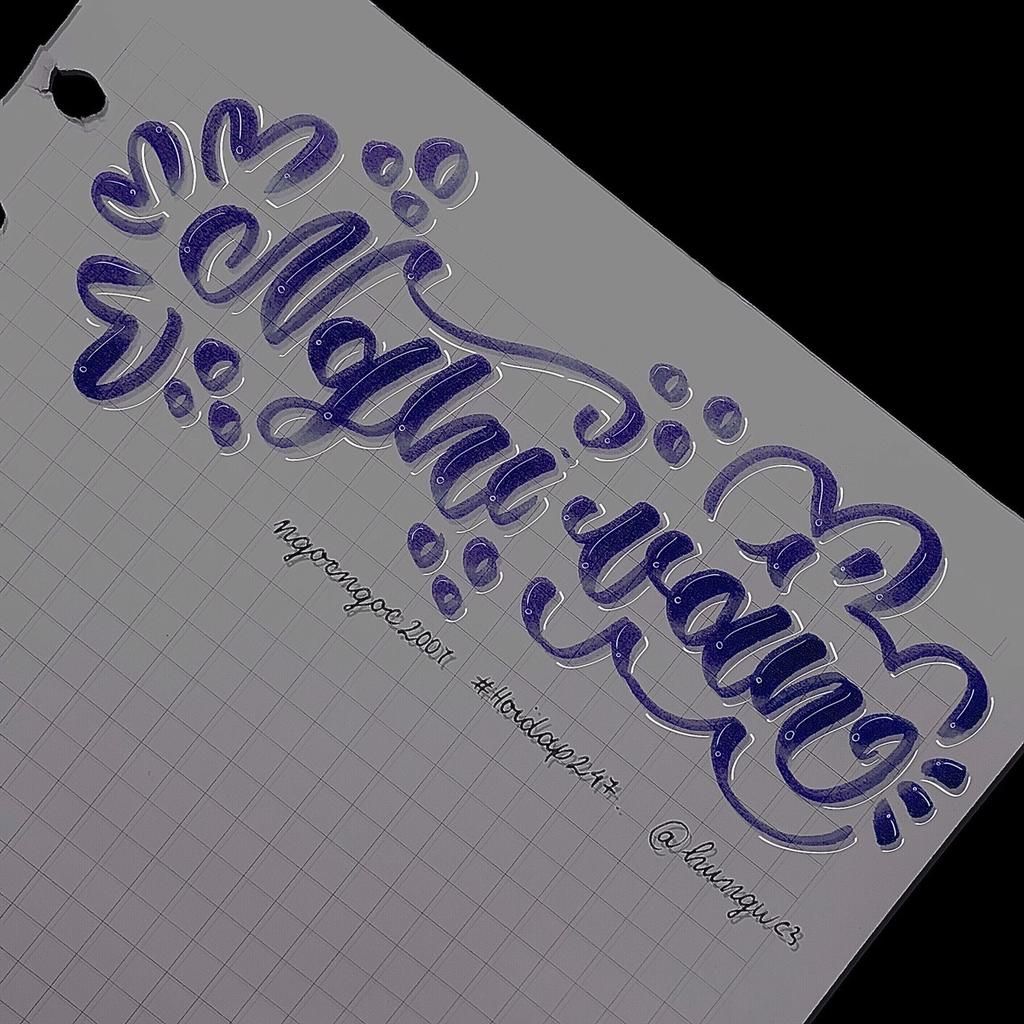 Nghi
ngocngoc2007
#Hoidap247.
@hungwc3